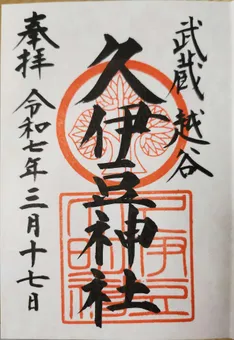 武蔵 越谷
久伊豆神社
奉拝 令和七年三月十七日